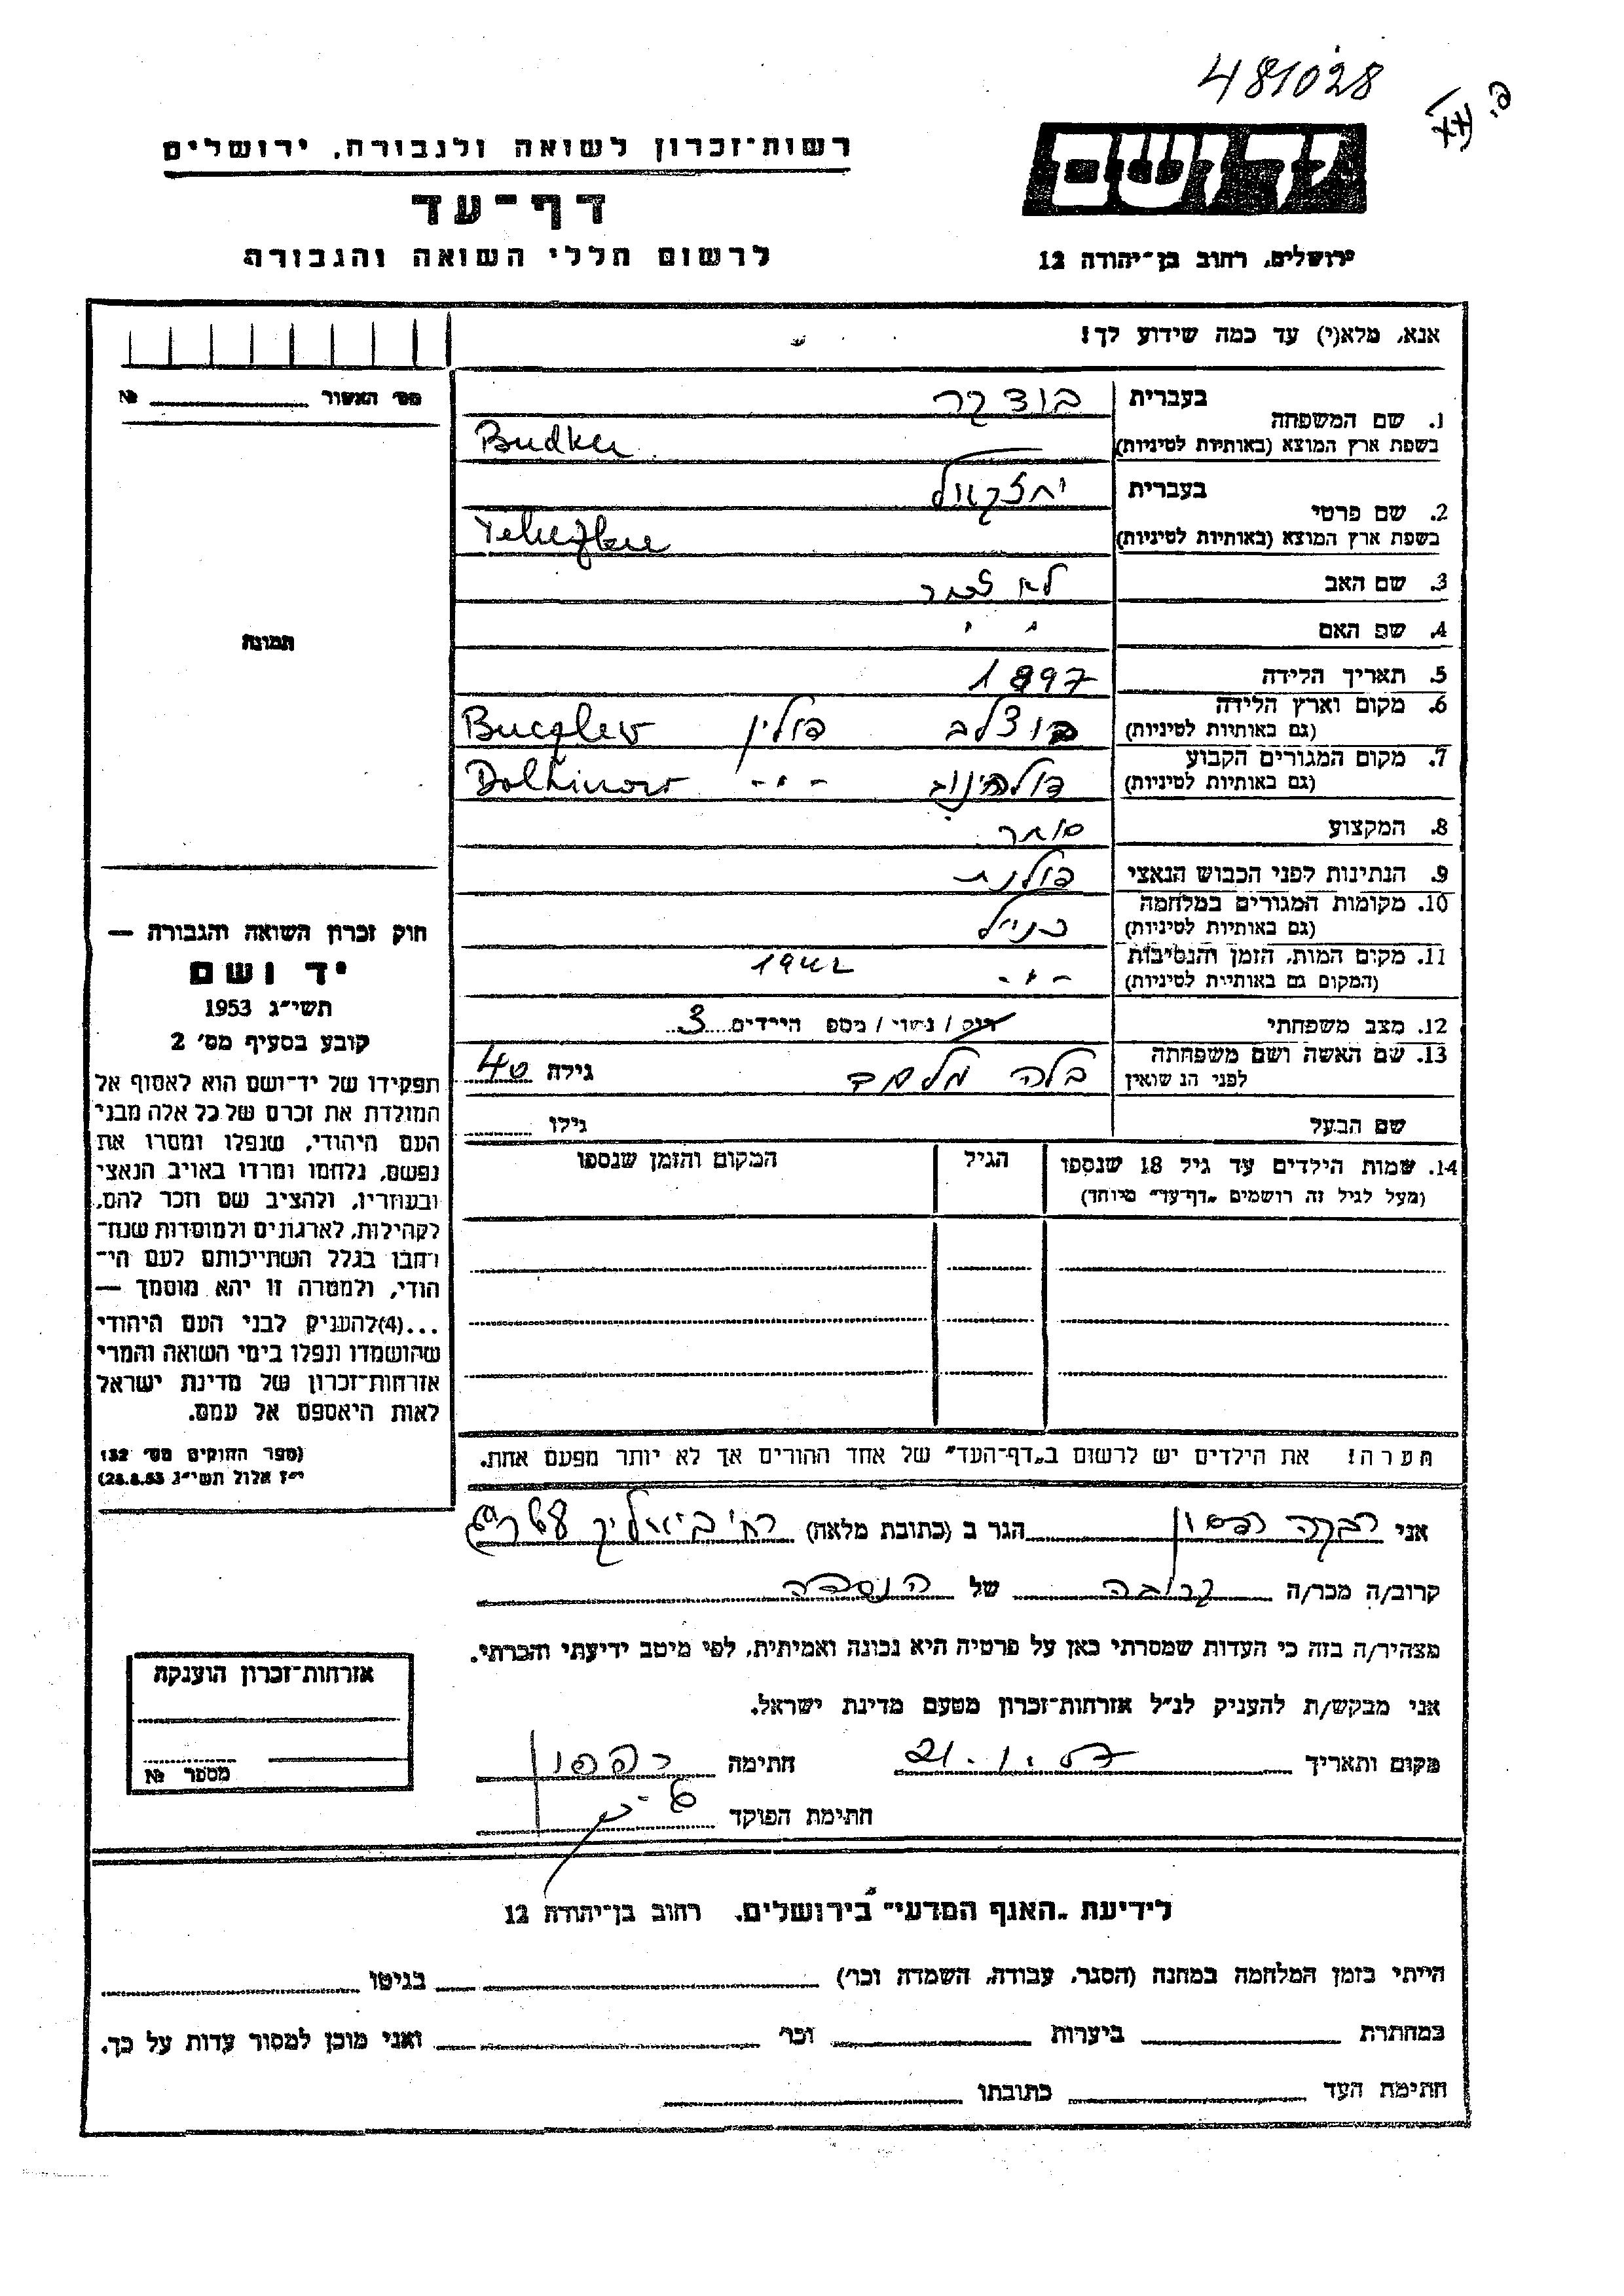 481028
רשות-זכרון לשואה ולגבורה, ירושלים
דף-עד
לרשום חללי השואה והגבורה
יד ושם
ירושלים, רחוב בן-יהודה 12
אנא, מלא(י) עד כמה שידוע לך!
מס׳ האשור № 
1. שם המשפחה בעברית בודקר
בשפת ארץ המוצא (באותיות לטיניות) Budker
2. שם פרטי בעברית יחזקאל
בשפת ארץ המוצא (באותיות לטיניות)
3. שם האב לא זוכר
4. שם האם " "
5. תאריך הלידה 1897
6. מקום וארץ הלידה (גם באותיות לטיניות) בוצלב פולין Bucglev
7. מקום המגורים הקבוע (גם באותיות לטיניות) דולהינוב -"- Dolhinow
8. המקצוע סוחר
9. הנתינות לפני הכבוש הנאצי פולנית
10. מקומות המגורים במלחמה (גם באותיות לטיניות) כנ״ל
11. מקום המות, הזמן והנסיבות (המקום גם באותיות לטיניות) -"- 1942
12. מצב משפחתי רווק / נשוי / מספ הילדים 3
13. שם האשה ושם משפחתה לפני הנשואין בלה מלמד גילה 40
שם הבעל גילו
14. שמות הילדים עד גיל 18 שנספו הגיל המקום והזמן שנספו
(מעל לגיל זה רושמים „דף-עד" מיוחד)
תמונה
חוק זכרון השואה והגבורה —
יד ושם
תשי״ג 1953
קובע בסעיף מס׳ 2
תפקידו של יד-ושם הוא לאסוף אל
המולדת את זכרם של כל אלה מבני
העם היהודי, שנפלו ומסרו את
נפשם, נלחמו ומרדו באויב הנאצי
ובעוזריו, ולהציב שם וזכר להם,
לקהילות, לארגונים ולמוסדות שנח־
רבו בגלל השתייכותם לעם הי־
הודי, ולמטרה זו יהא מוסמך —
...(4) להעניק לבני העם היהודי
שהושמדו ונפלו בימי השואה והמרי
אזרחות-זכרון של מדינת ישראל
לאות היאספם אל עמם.
(ספר החוקים מס׳ 132
י״ז אלול תשי״ג 28.8.53)
הערה! את הילדים יש לרשום ב„דף-העד" של אחד ההורים אך לא יותר מפעם אחת.
אני רבקה הגר ב (כתובת מלאה) רח׳ ביאליק
קרוב/ה מכר/ה קרובה של הנספה
מצהיר/ה בזה כי העדות שמסרתי כאן על פרטיה היא נכונה ואמיתית, לפי מיטב ידיעתי והכרתי.
אני מבקש/ת להעניק לנ״ל אזרחות-זכרון מטעם מדינת ישראל.
מקום ותאריך 21.1. חתימה
חתימת הפוקד
אזרחות-זכרון הוענקה
מספר №
לידיעת „האגף המדעי" בירושלים, רחוב בן-יהודה 12
הייתי בזמן המלחמה במחנה (הסגר, עבודה, השמדה וכו׳) בגיטו
במחתרת ביערות וכו׳ ואני מוכן למסור עדות על כך.
חתימת העד כתובתו